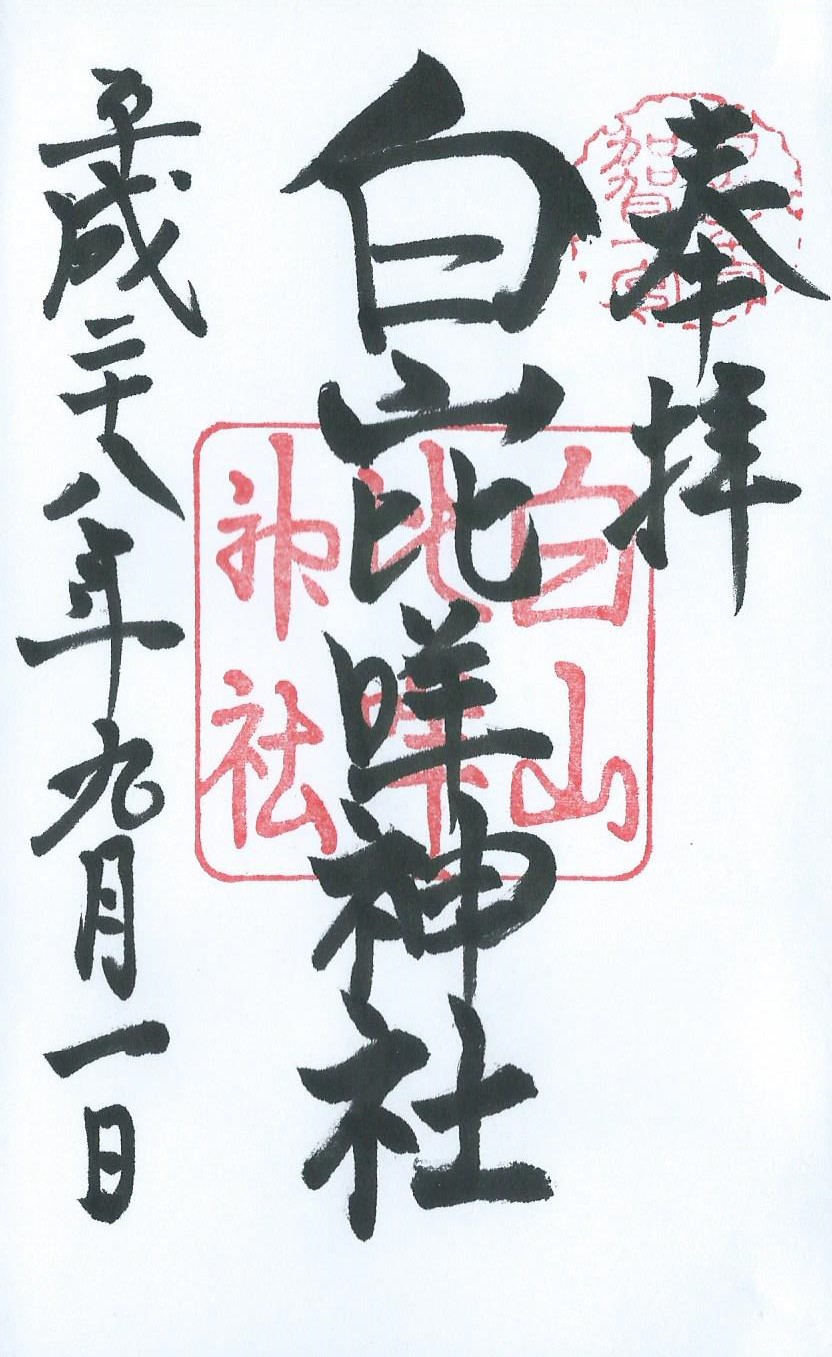 奉拝
白山比咩神社
平成二十八年九月一日
加賀一宮
白山
比咩
神社